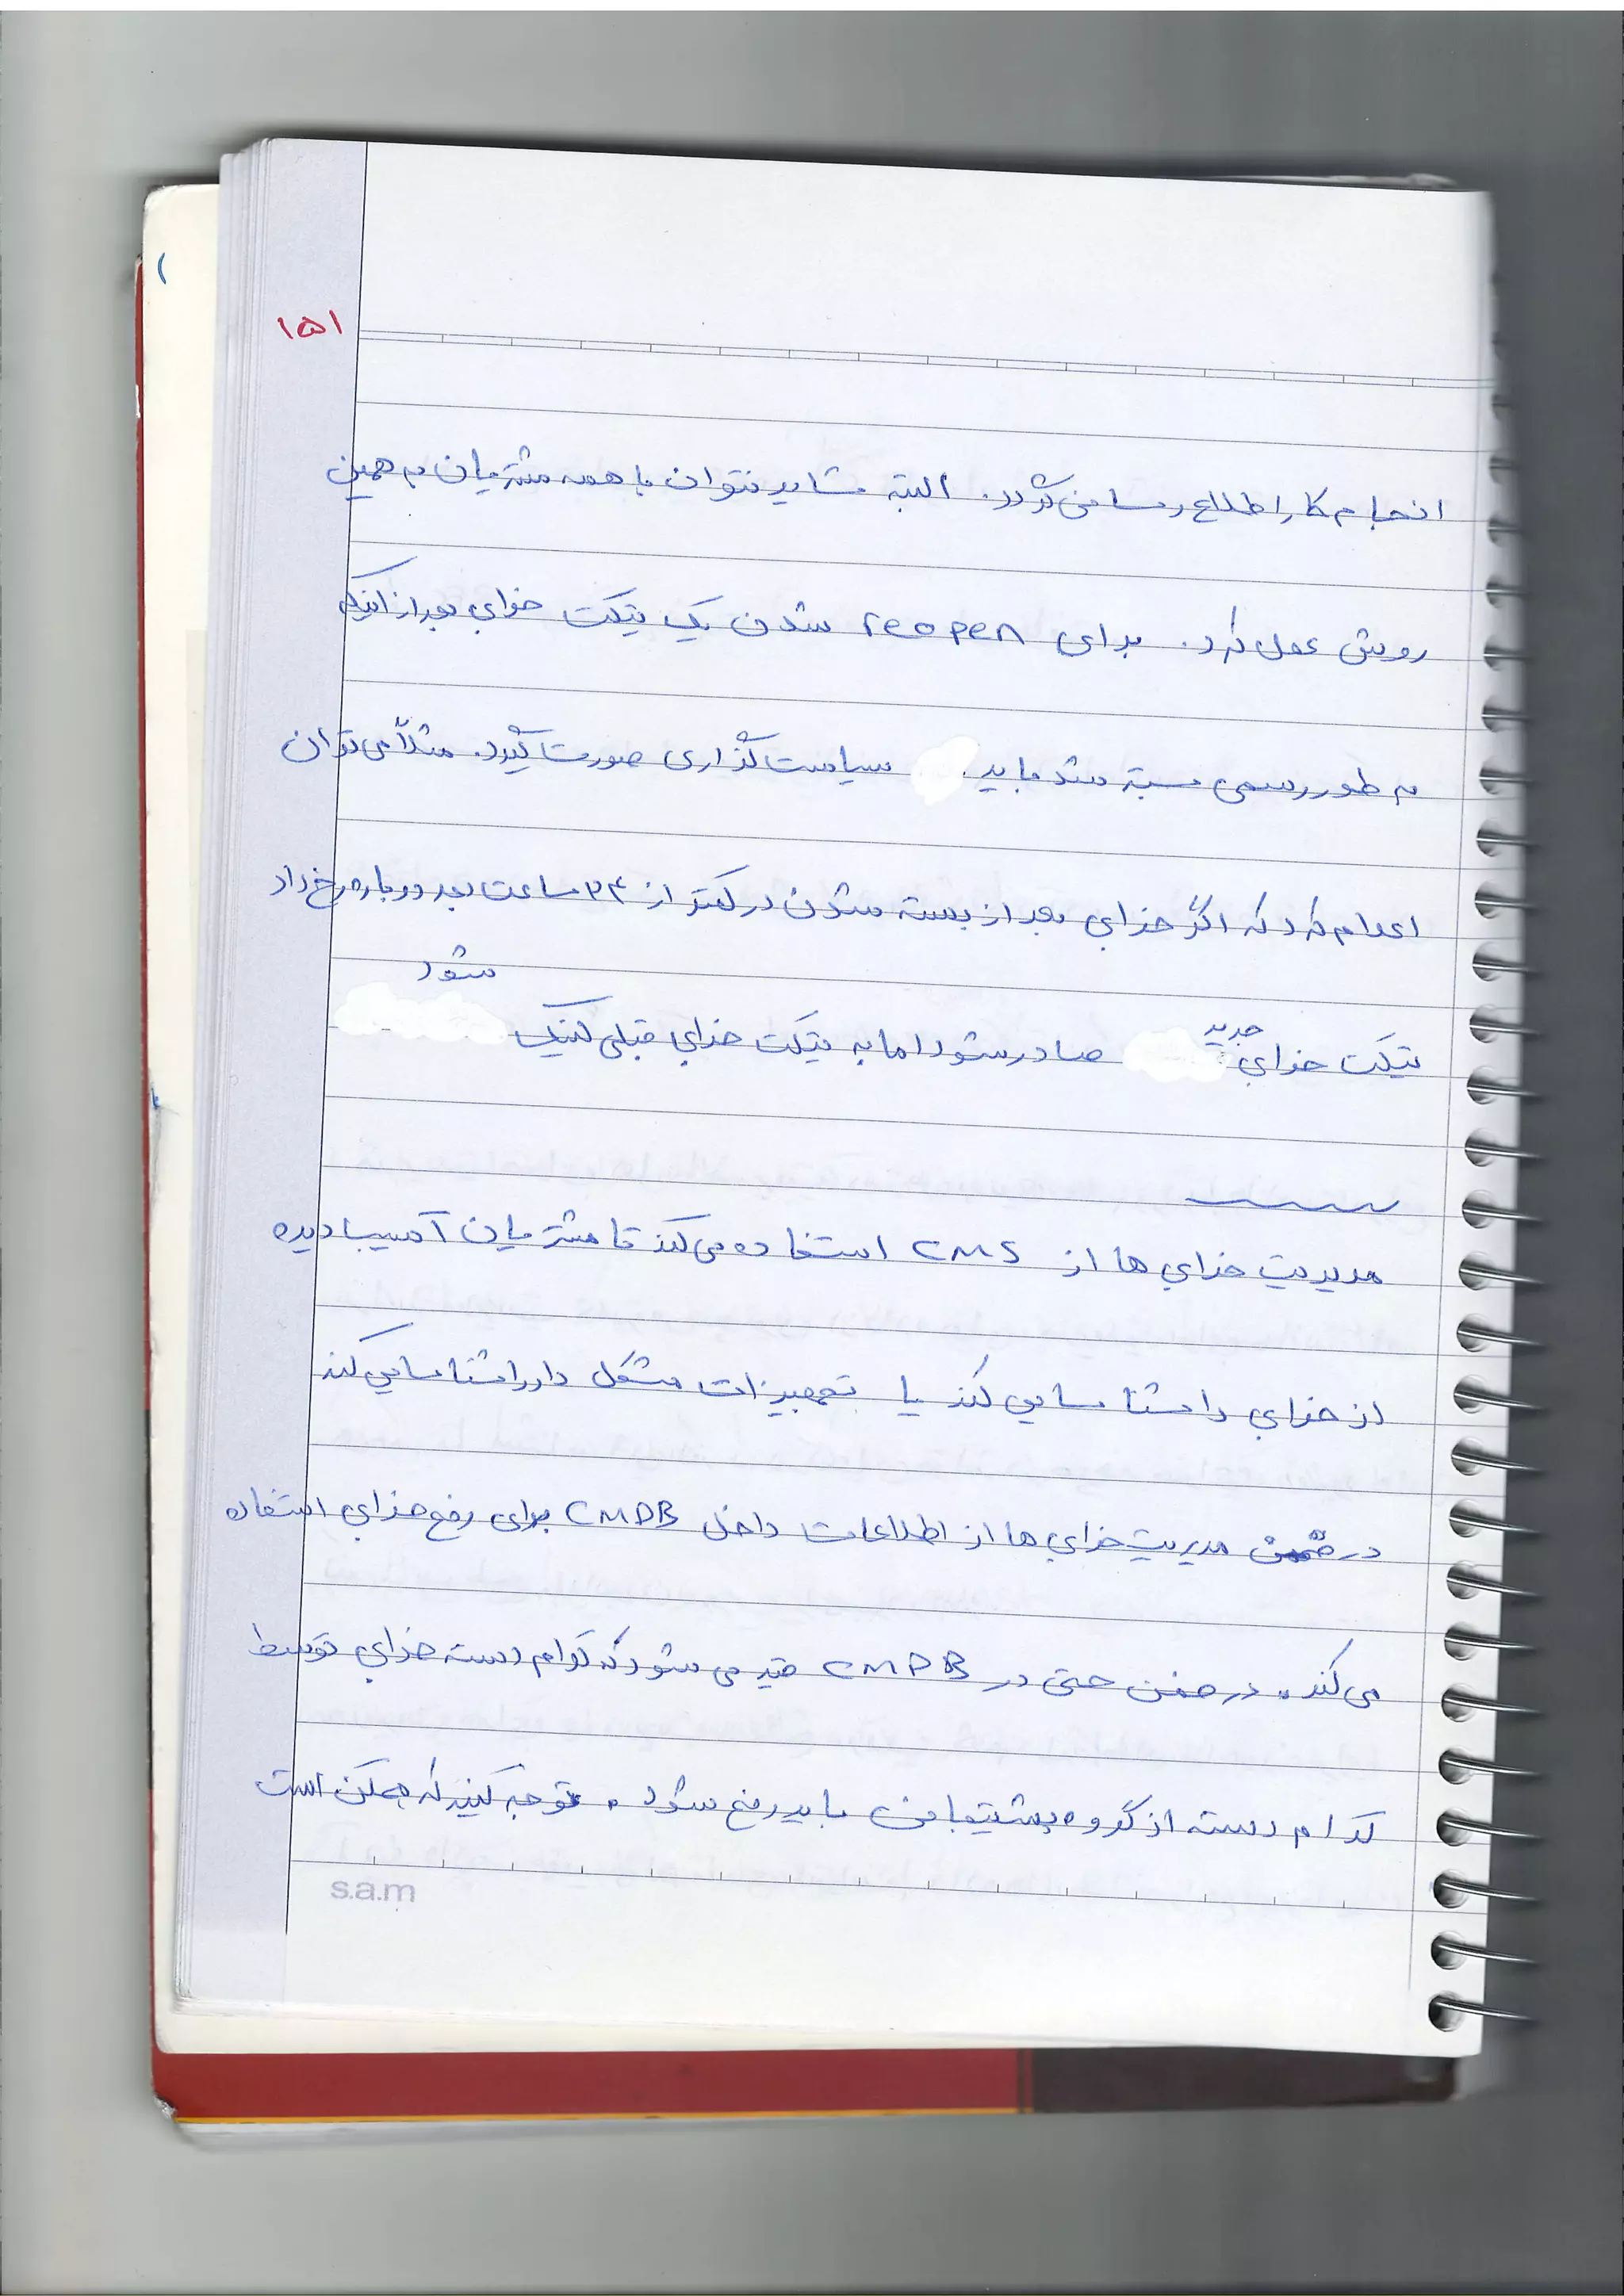 ۱۵۱
انجام کار اطلاع رسانی کرد. البته شاید نتوان با همه مشتریان به همین
روش عمل کرد. برای reopen شدن یک تیکت خرابی بعد از اینکه
به طور رسمی بسته شد باید سیاست گذاری صورت گیرد. مثلاً می توان
اعلام کرد که اگر خرابی بعد از بسته شدن در کمتر از ۲۴ ساعت بعد دوباره رخ داد
تیکت خرابی جدید صادر شود اما به تیکت خرابی قبلی لینک شود
مدیریت خرابی ها از CMS استفاده می کند تا مشتریان آسیب دیده
از خرابی را شناسایی کند یا تجهیزات مشکل دار را شناسایی کند
در ضمن مدیریت خرابی ها از اطلاعات داخل CMDB برای رفع خرابی استفاده
می کند. در ضمن حتی در CMDB قید می شود که کدام دسته خرابی توسط
کدام دسته از گروه پشتیبانی باید رفع شود. توجه کنید که ممکن است
s.a.m